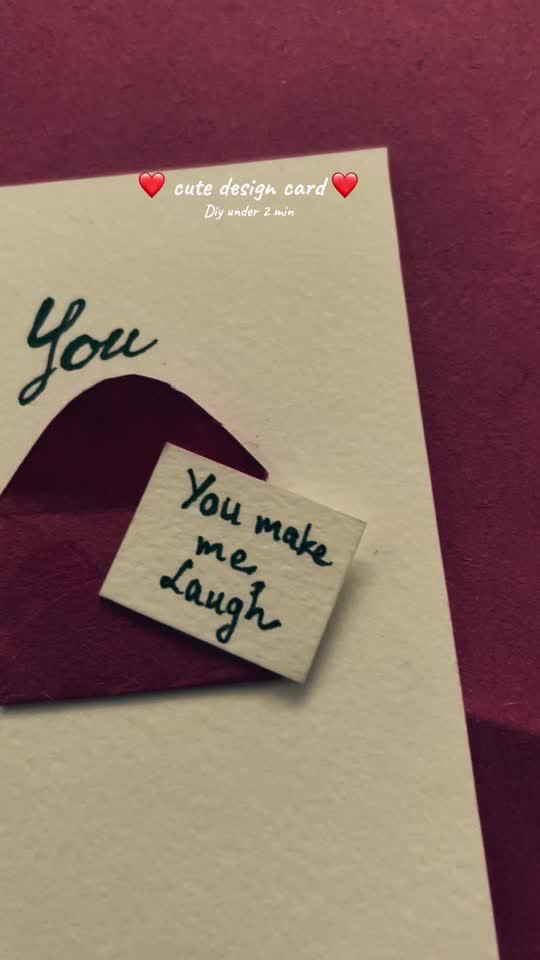 ❤️ cute design card ❤️
Diy under 2 min
You
You make
me
Laugh